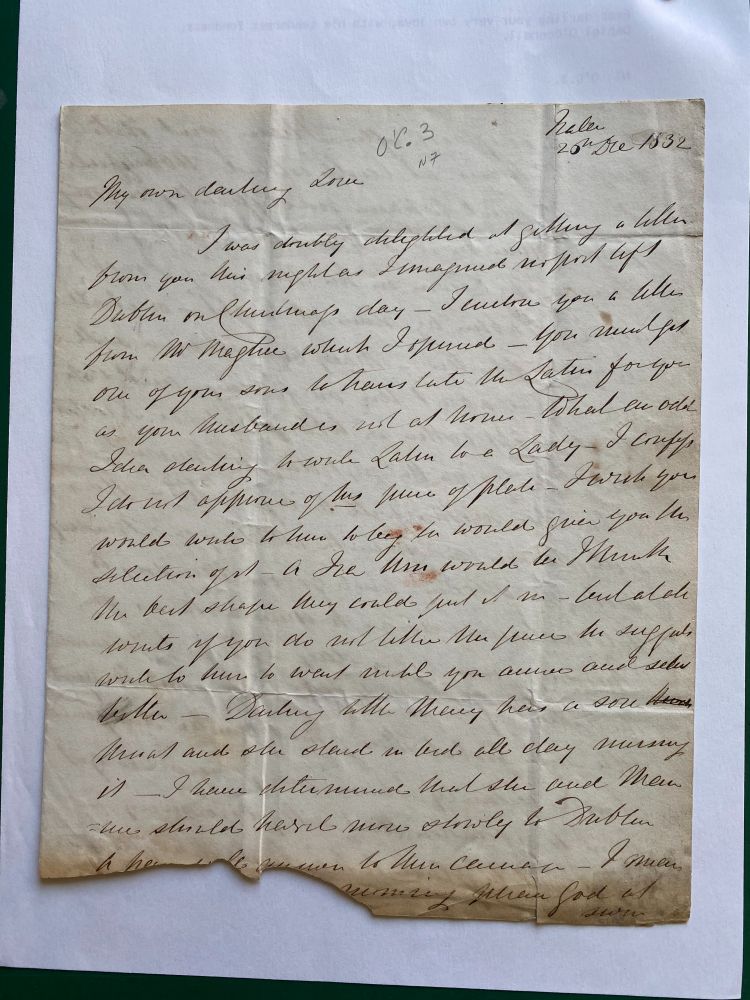 O'C. 3
N7
Tralee
26th Dec 1832
My own darling Love
I was doubly delighted at getting a letter
from you this night as I imagined no post left
Dublin on Christmass day – I enclose you a letter
from Mr Maghee which I opened – You must get
one of your sons to translate the Latin for you
as your husband is not at home – What an odd
Idea darling to write Latin to a Lady – I confess
I do not approve of his piece of plate – I wish you
would write to him to beg he would give you the
selection of it – A Tea Urn would be I think
the best shape they could put it in – but at all
events if you do not like the piece he suggests
write to him to wait until you arrive and select
better – Darling little Mary has a sore
throat and she staid in bed all day nursing
it – I have determined that she and Mau
=rice should travel more slowly to Dublin
to the carriage – I mean
morning please God at
seven